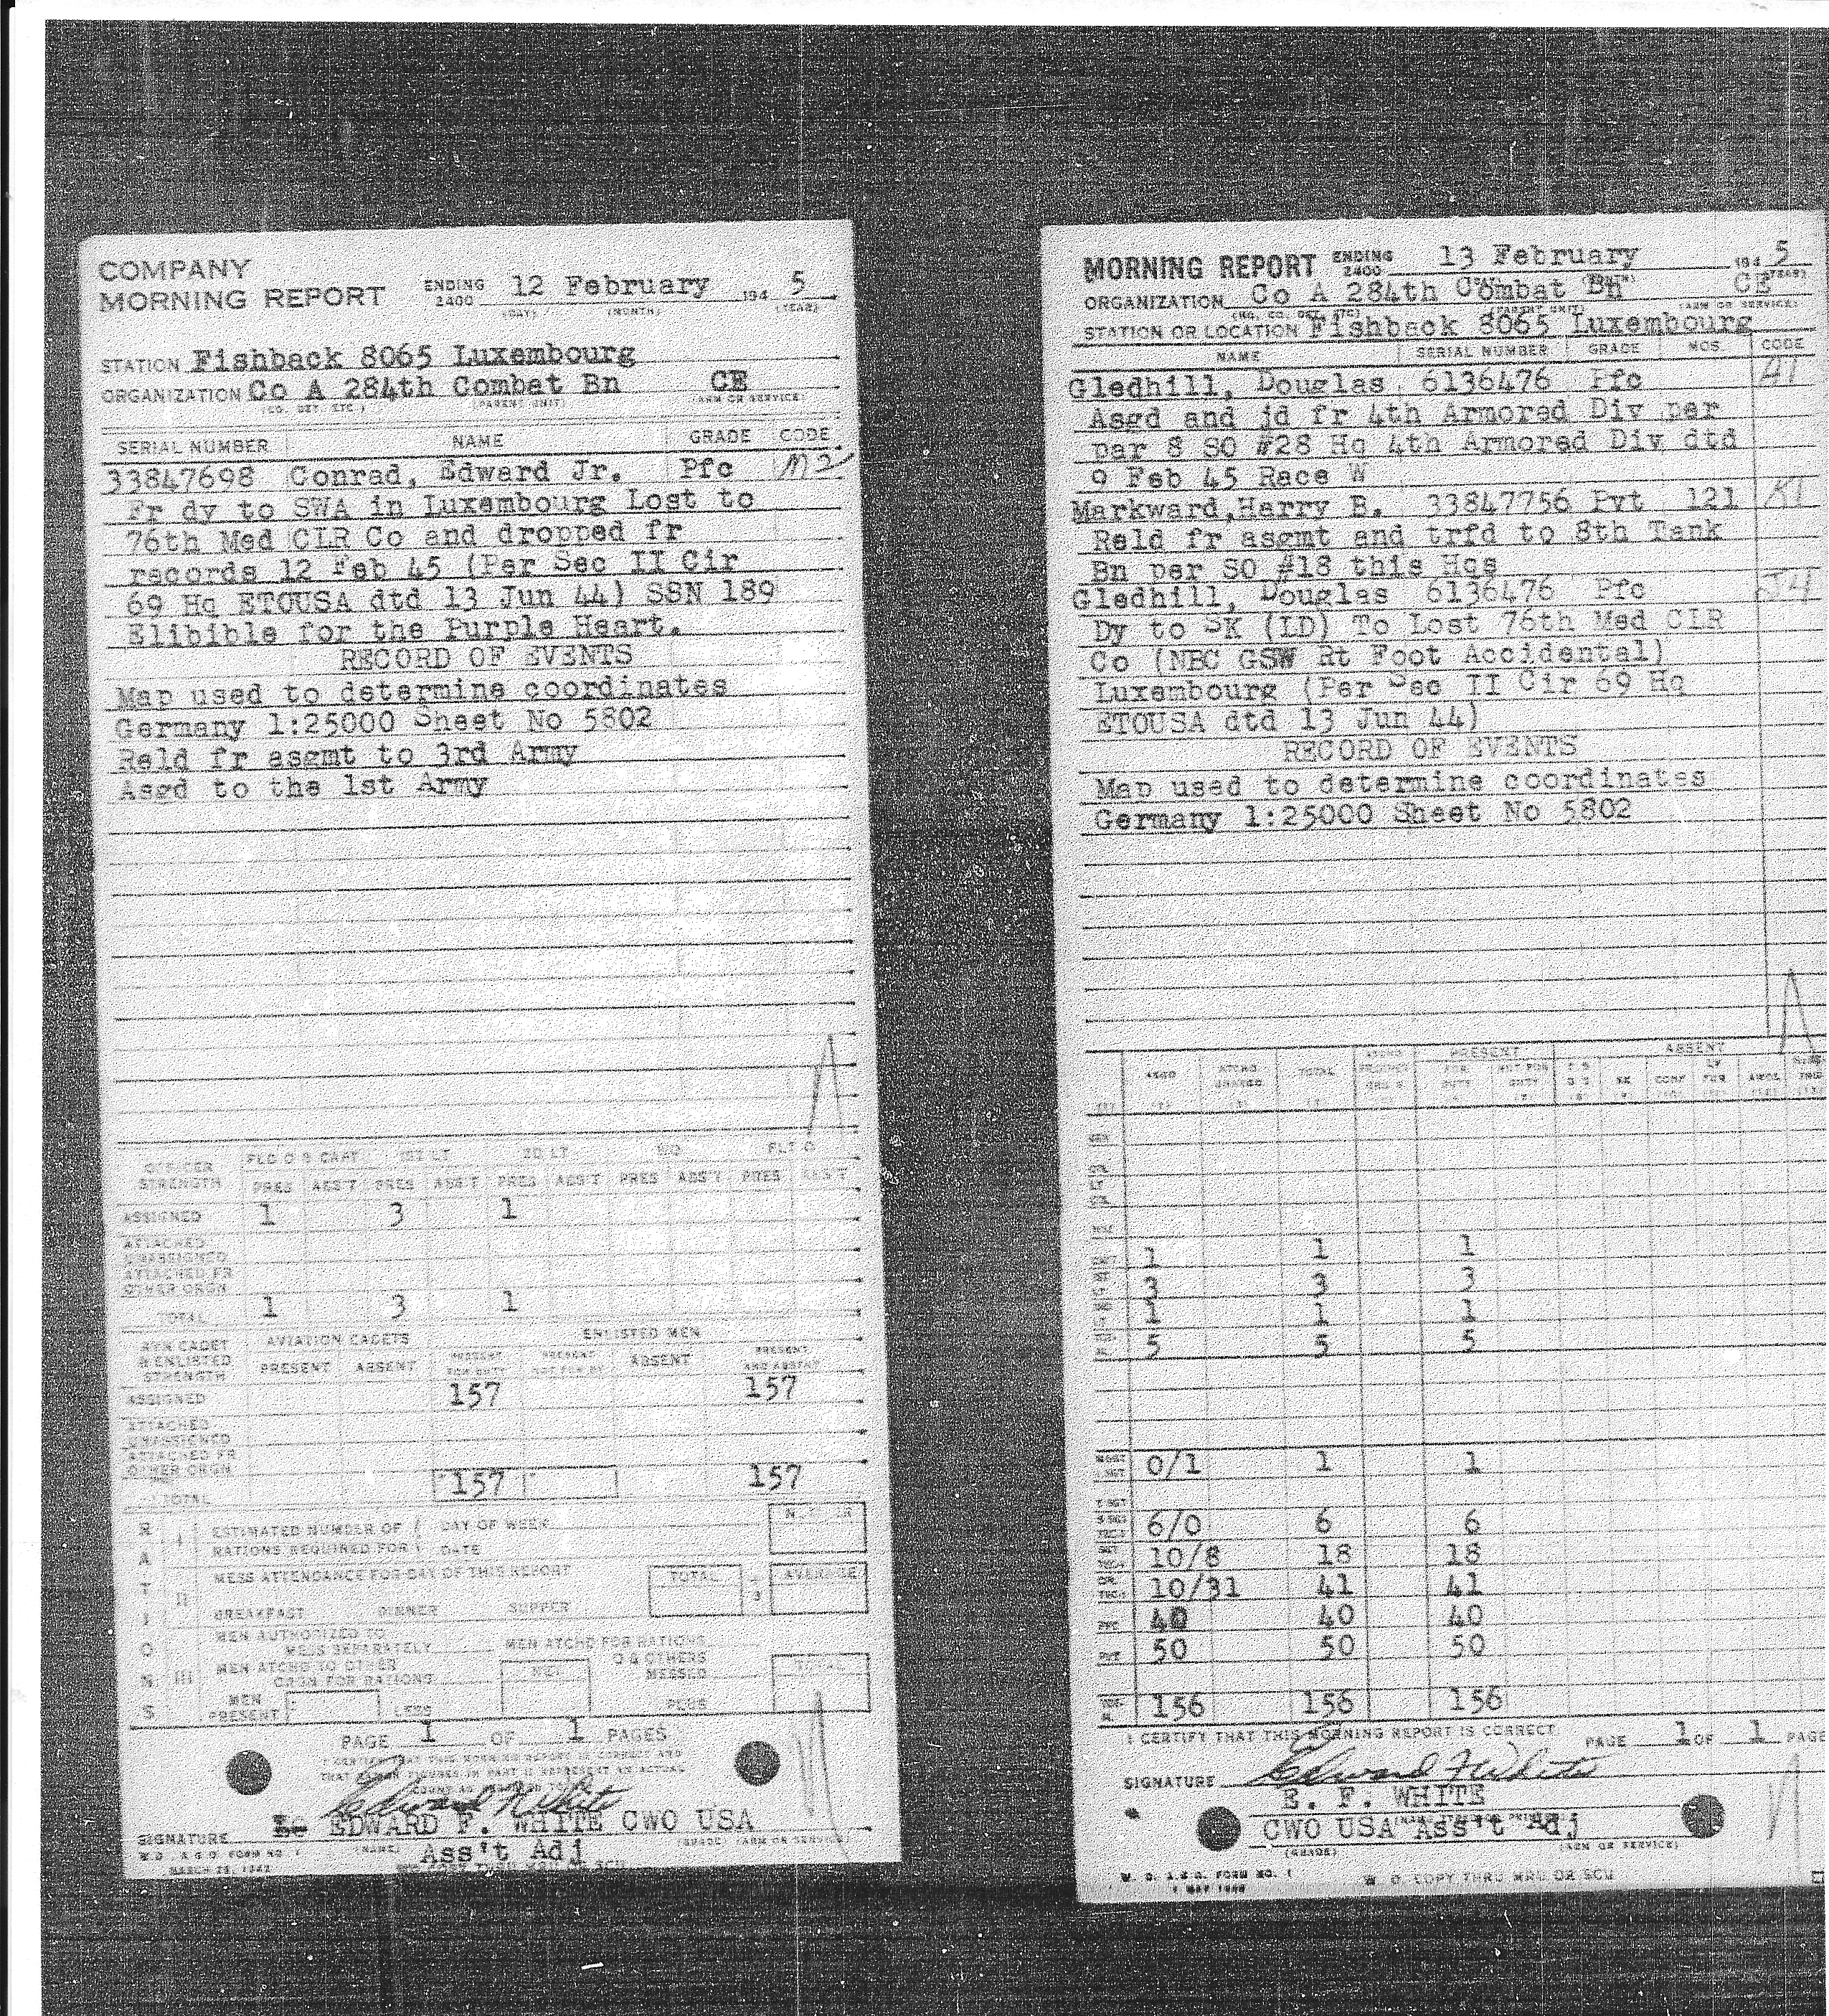 COMPANY
MORNING REPORT ENDING 2400 12 February 194 5
(DAY) (MONTH) (YEAR)
STATION Fishback 8065 Luxembourg
ORGANIZATION Co A 284th Combat Bn CE
(CO. DET. ETC.) (PARENT UNIT) (ARM OR SERVICE)
SERIAL NUMBER NAME GRADE CODE
33847698 Conrad, Edward Jr. Pfc M2
Fr dy to SWA in Luxembourg Lost to
76th Med CLR Co and dropped fr
records 12 Feb 45 (Per Sec II Cir
69 Hq ETOUSA dtd 13 Jun 44) SSN 189
Elibible for the Purple Heart.
RECORD OF EVENTS
Map used to determine coordinates
Germany 1:25000 Sheet No 5802
Reld fr asgmt to 3rd Army
Asgd to the 1st Army
OFFICER STRENGTH FLD O & CAPT 1ST LT 2D LT WO FLT O
PRES ABS'T PRES ABS'T PRES ABS'T PRES ABS'T PRES ABS'T
ASSIGNED 1 3 1
ATTACHED UNASSIGNED
ATTACHED FR OTHER ORGN
TOTAL 1 3 1
AVN CADET & ENLISTED STRENGTH AVIATION CADETS ENLISTED MEN
PRESENT ABSENT PRESENT FOR DUTY PRESENT NOT FOR DY ABSENT PRESENT AND ABSENT
ASSIGNED 157 157
ATTACHED UNASSIGNED
ATTACHED FR OTHER ORGN
TOTAL 157 157
RATIONS
I ESTIMATED NUMBER OF RATIONS REQUIRED FOR DAY OF WEEK DATE
II MESS ATTENDANCE FOR DAY OF THIS REPORT TOTAL 3 AVERAGE
BREAKFAST DINNER SUPPER
III MEN AUTHORIZED TO MESS SEPARATELY MEN ATCHD FOR RATIONS
MEN ATCHD TO OTHER ORGN FOR RATIONS NET O & OTHERS MESSED TOTAL
MEN PRESENT LESS PLUS
PAGE 1 OF 1 PAGES
I CERTIFY THAT THIS MORNING REPORT IS CORRECT AND
Edward F White
SIGNATURE EDWARD F. WHITE CWO USA
(NAME) (GRADE) (ARM OR SERVICE)
Ass't Adj
W.D., A.G.O. FORM NO. 1
MARCH 25, 1942
MORNING REPORT ENDING 2400 13 February 194 5
(YEAR)
ORGANIZATION Co A 284th Combat Bn CE
(HQ. CO. DET. ETC) (PARENT UNIT) (ARM OR SERVICE)
STATION OR LOCATION Fishback 8065 Luxembourg
NAME SERIAL NUMBER GRADE MOS CODE
Gledhill, Douglas 6136476 Pfc A1
Asgd and jd fr 4th Armored Div per
par 8 SO #28 Hq 4th Armored Div dtd
9 Feb 45 Race W
Markward,Harry B. 33847756 Pvt 121 K1
Reld fr asgmt and trfd to 8th Tank
Bn per SO #18 this Hqs
Gledhill, Douglas 6136476 Pfc J4
Dy to SK (LD) To Lost 76th Med CLR
Co (NBC GSW Rt Foot Accidental)
Luxembourg (Per Sec II Cir 69 Hq
ETOUSA dtd 13 Jun 44)
RECORD OF EVENTS
Map used to determine coordinates
Germany 1:25000 Sheet No 5802
PRESENT ABSENT
ASGD ATCHD UNASGD TOTAL FOR DUTY NOT FOR DUTY SK CONF LV FUR AWOL
1 1 1
3 3 3
1 1 1
5 5 5
0/1 1 1
6/0 6 6
10/8 18 18
10/31 41 41
PFC 40 40 40
PVT 50 50 50
156 156 156
I CERTIFY THAT THIS MORNING REPORT IS CORRECT PAGE 1 OF 1 PAGE
SIGNATURE Edward F White
E. F. WHITE
CWO USA Ass't Adj
(GRADE) (ARM OR SERVICE)
W. D. A.G.O. FORM NO. 1
W D. COPY THRU MRU OR SCU